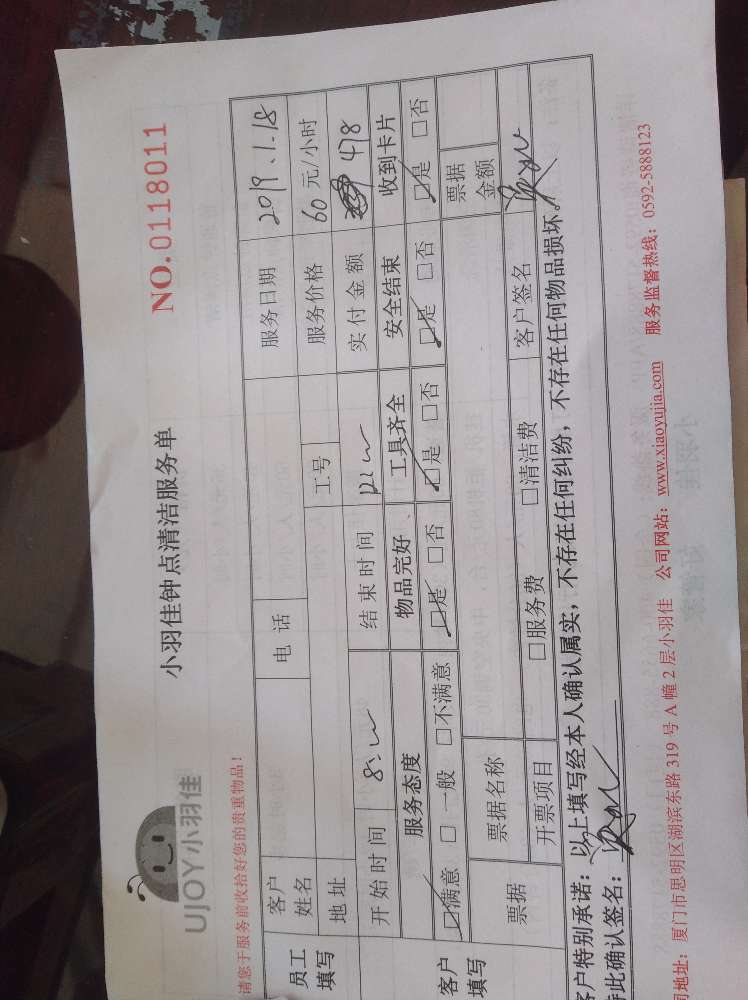 UJOY小羽佳
小羽佳钟点清洁服务单
NO.0118011
请您于服务前收拾好您的贵重物品!
员工填写
客户姓名 电话 服务日期 2019.1.18
地址 工号 服务价格 60元/小时
开始时间 结束时间 实付金额 478
客户填写
服务态度 物品完好、 工具齐全 安全结束 收到卡片
□满意 □一般 □不满意 □是 □否 □是 □否 □是 □否 □是 □否
票据 票据名称 票据金额
开票项目 □服务费 □清洁费 客户签名
客户特别承诺:以上填写经本人确认属实,不存在任何纠纷,不存在任何物品损坏。
特此确认签名:
司地址:厦门市思明区湖滨东路319号A幢2层小羽佳 公司网站:www.xiaoyujia.com 服务监督热线:0592-5888123